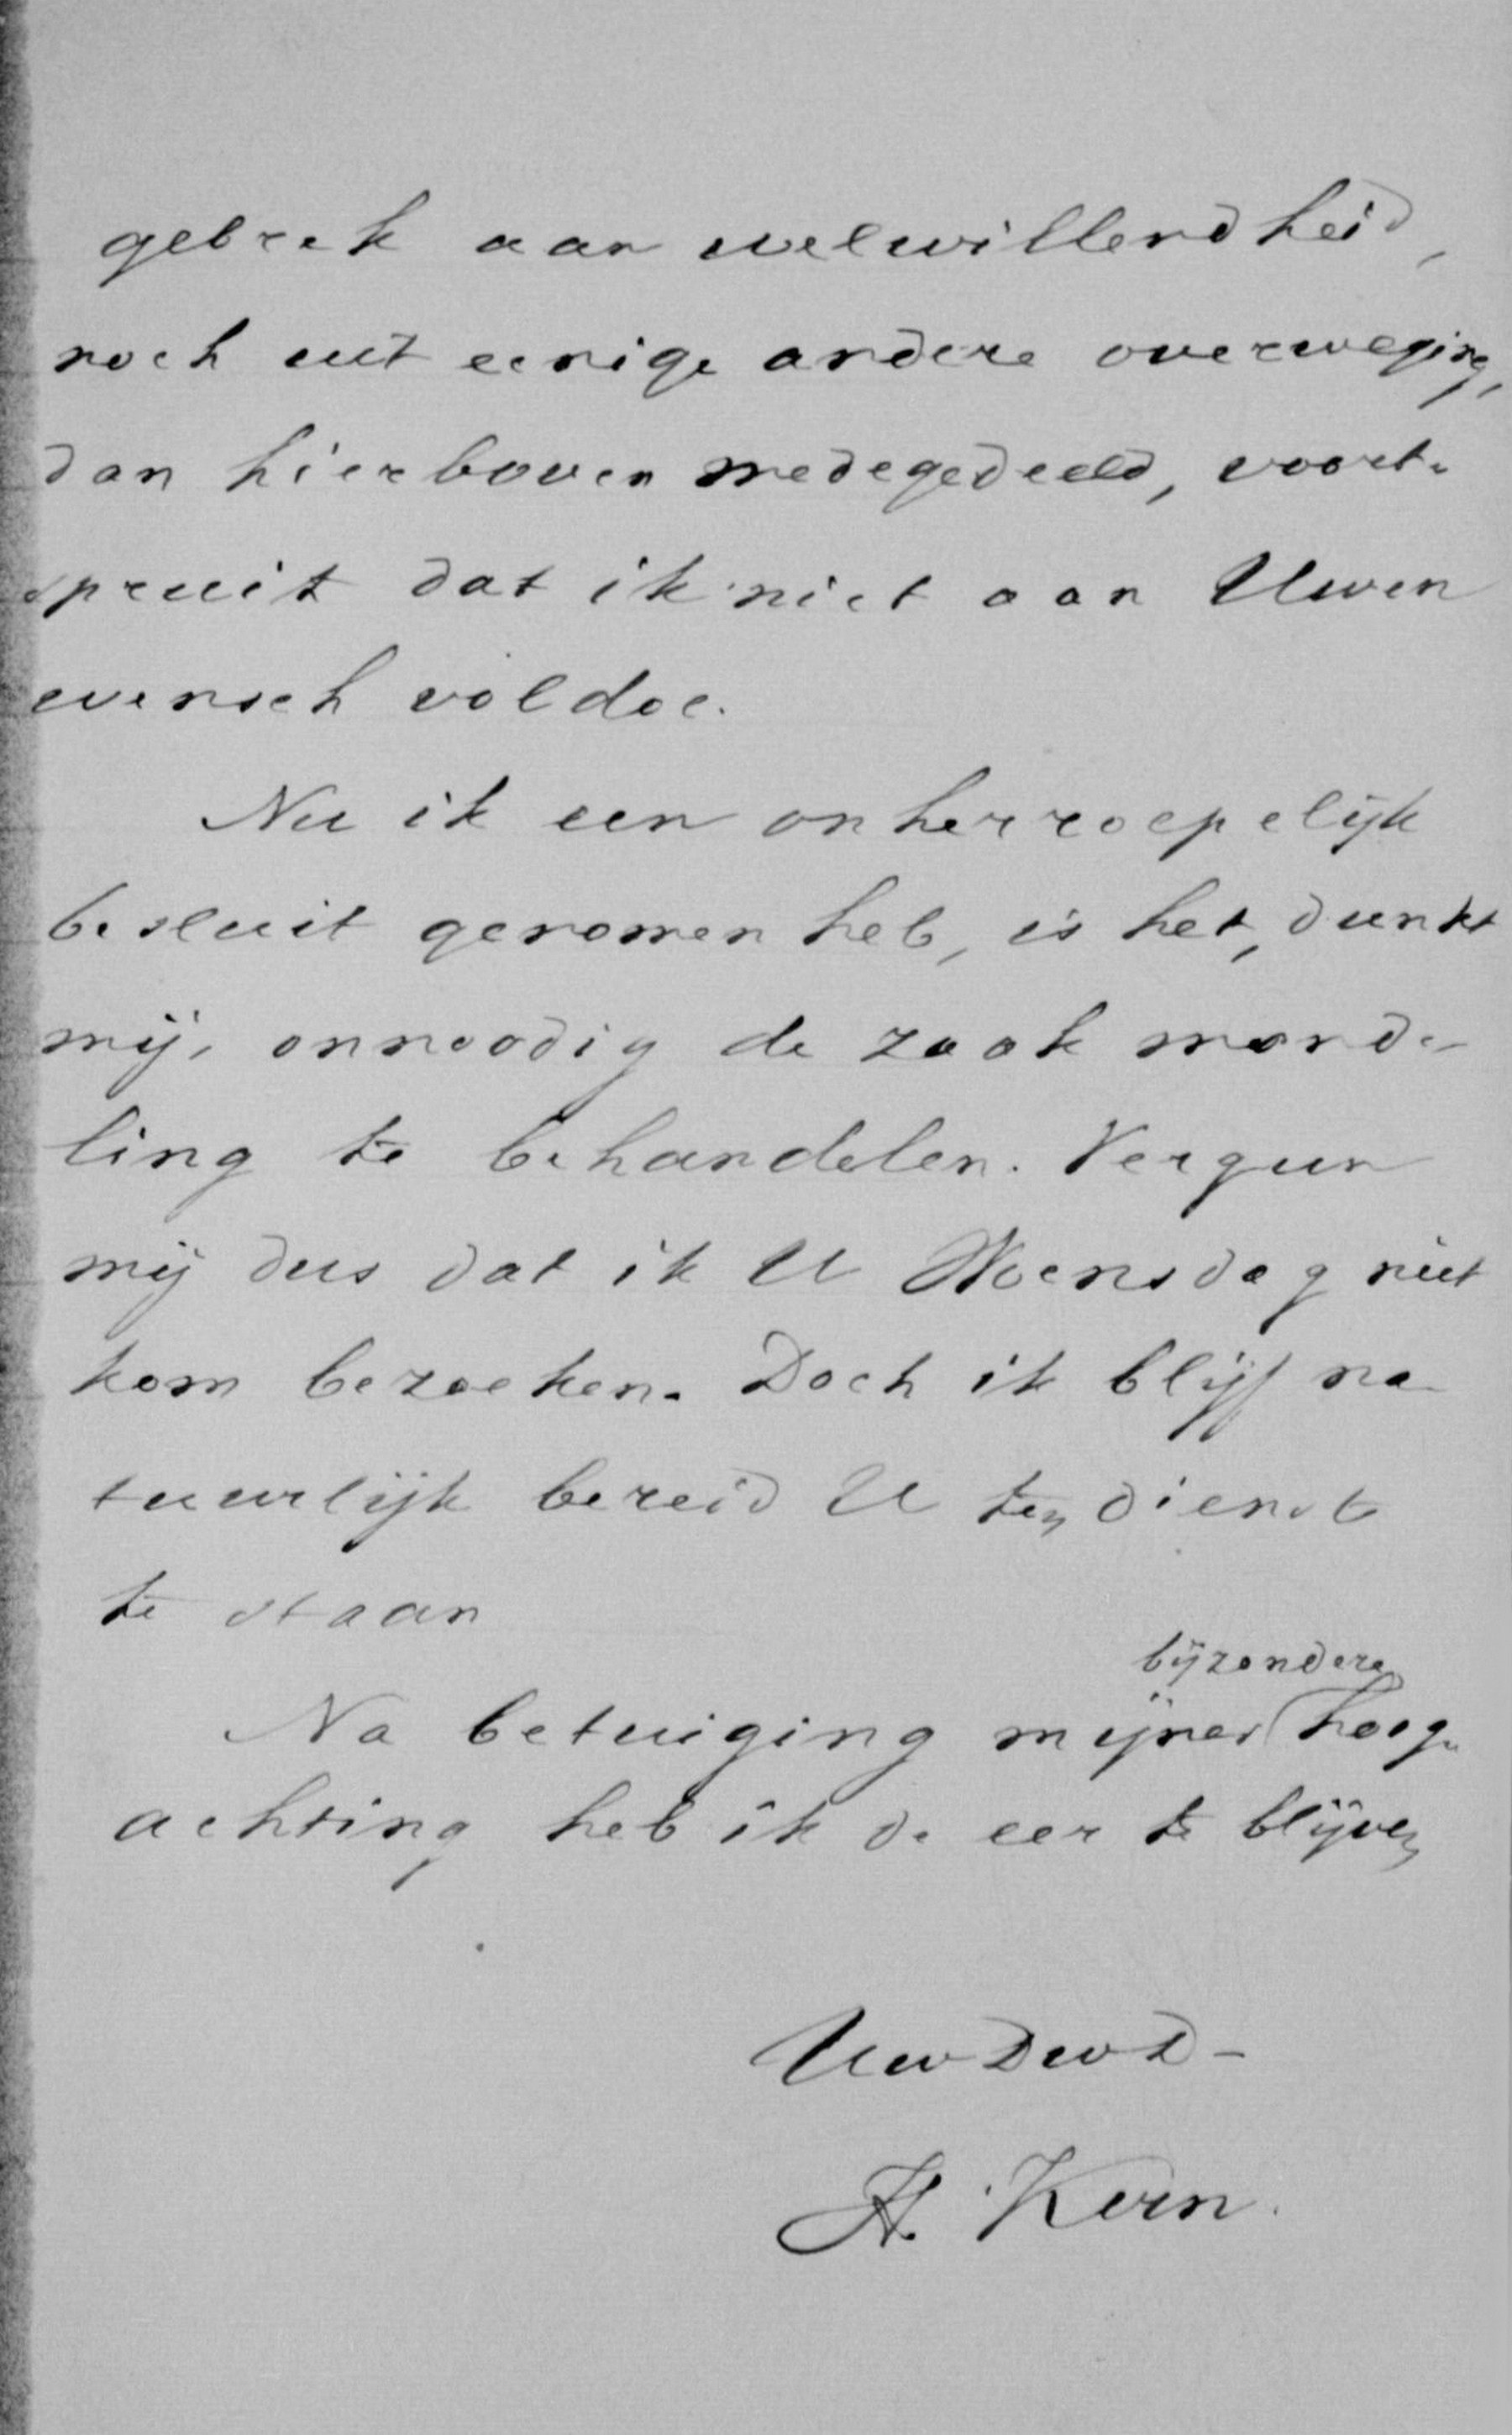 gebrek aan welwillendheid,
noch uit eenige andere overweging,
dan hierboven medegedeeld, voort-
spruit dat ik niet aan Uwen
wensch voldoe.
Nu ik een onherroepelijk
besluit genomen heb, is het, dunkt
mij, onnoodig de zaak monde-
ling te behandelen. Vergun
mij dus dat ik U Woensdag niet
kom bezoeken. Doch ik blijf na-
tuurlijk bereid U ten dienste
te staan
bijzondere
Na betuiging mijner hoog-
achting heb ik de eer te blijven
Uw Dw D-
H. Kern.